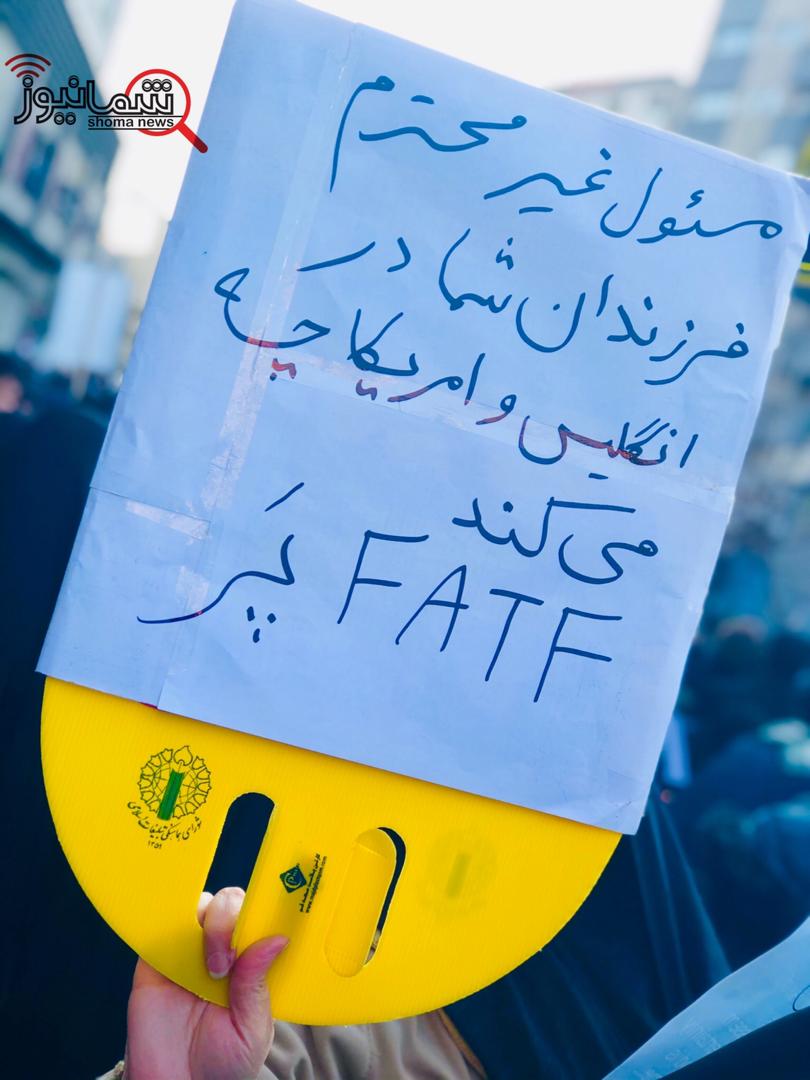 شمانیوز
shoma news
مسئول غیر محترم
فرزندان شما در
انگلیس و امریکا چه
می کند
FATF پَر
شورای هماهنگی تبلیغات اسلامی
۱۳۵۹